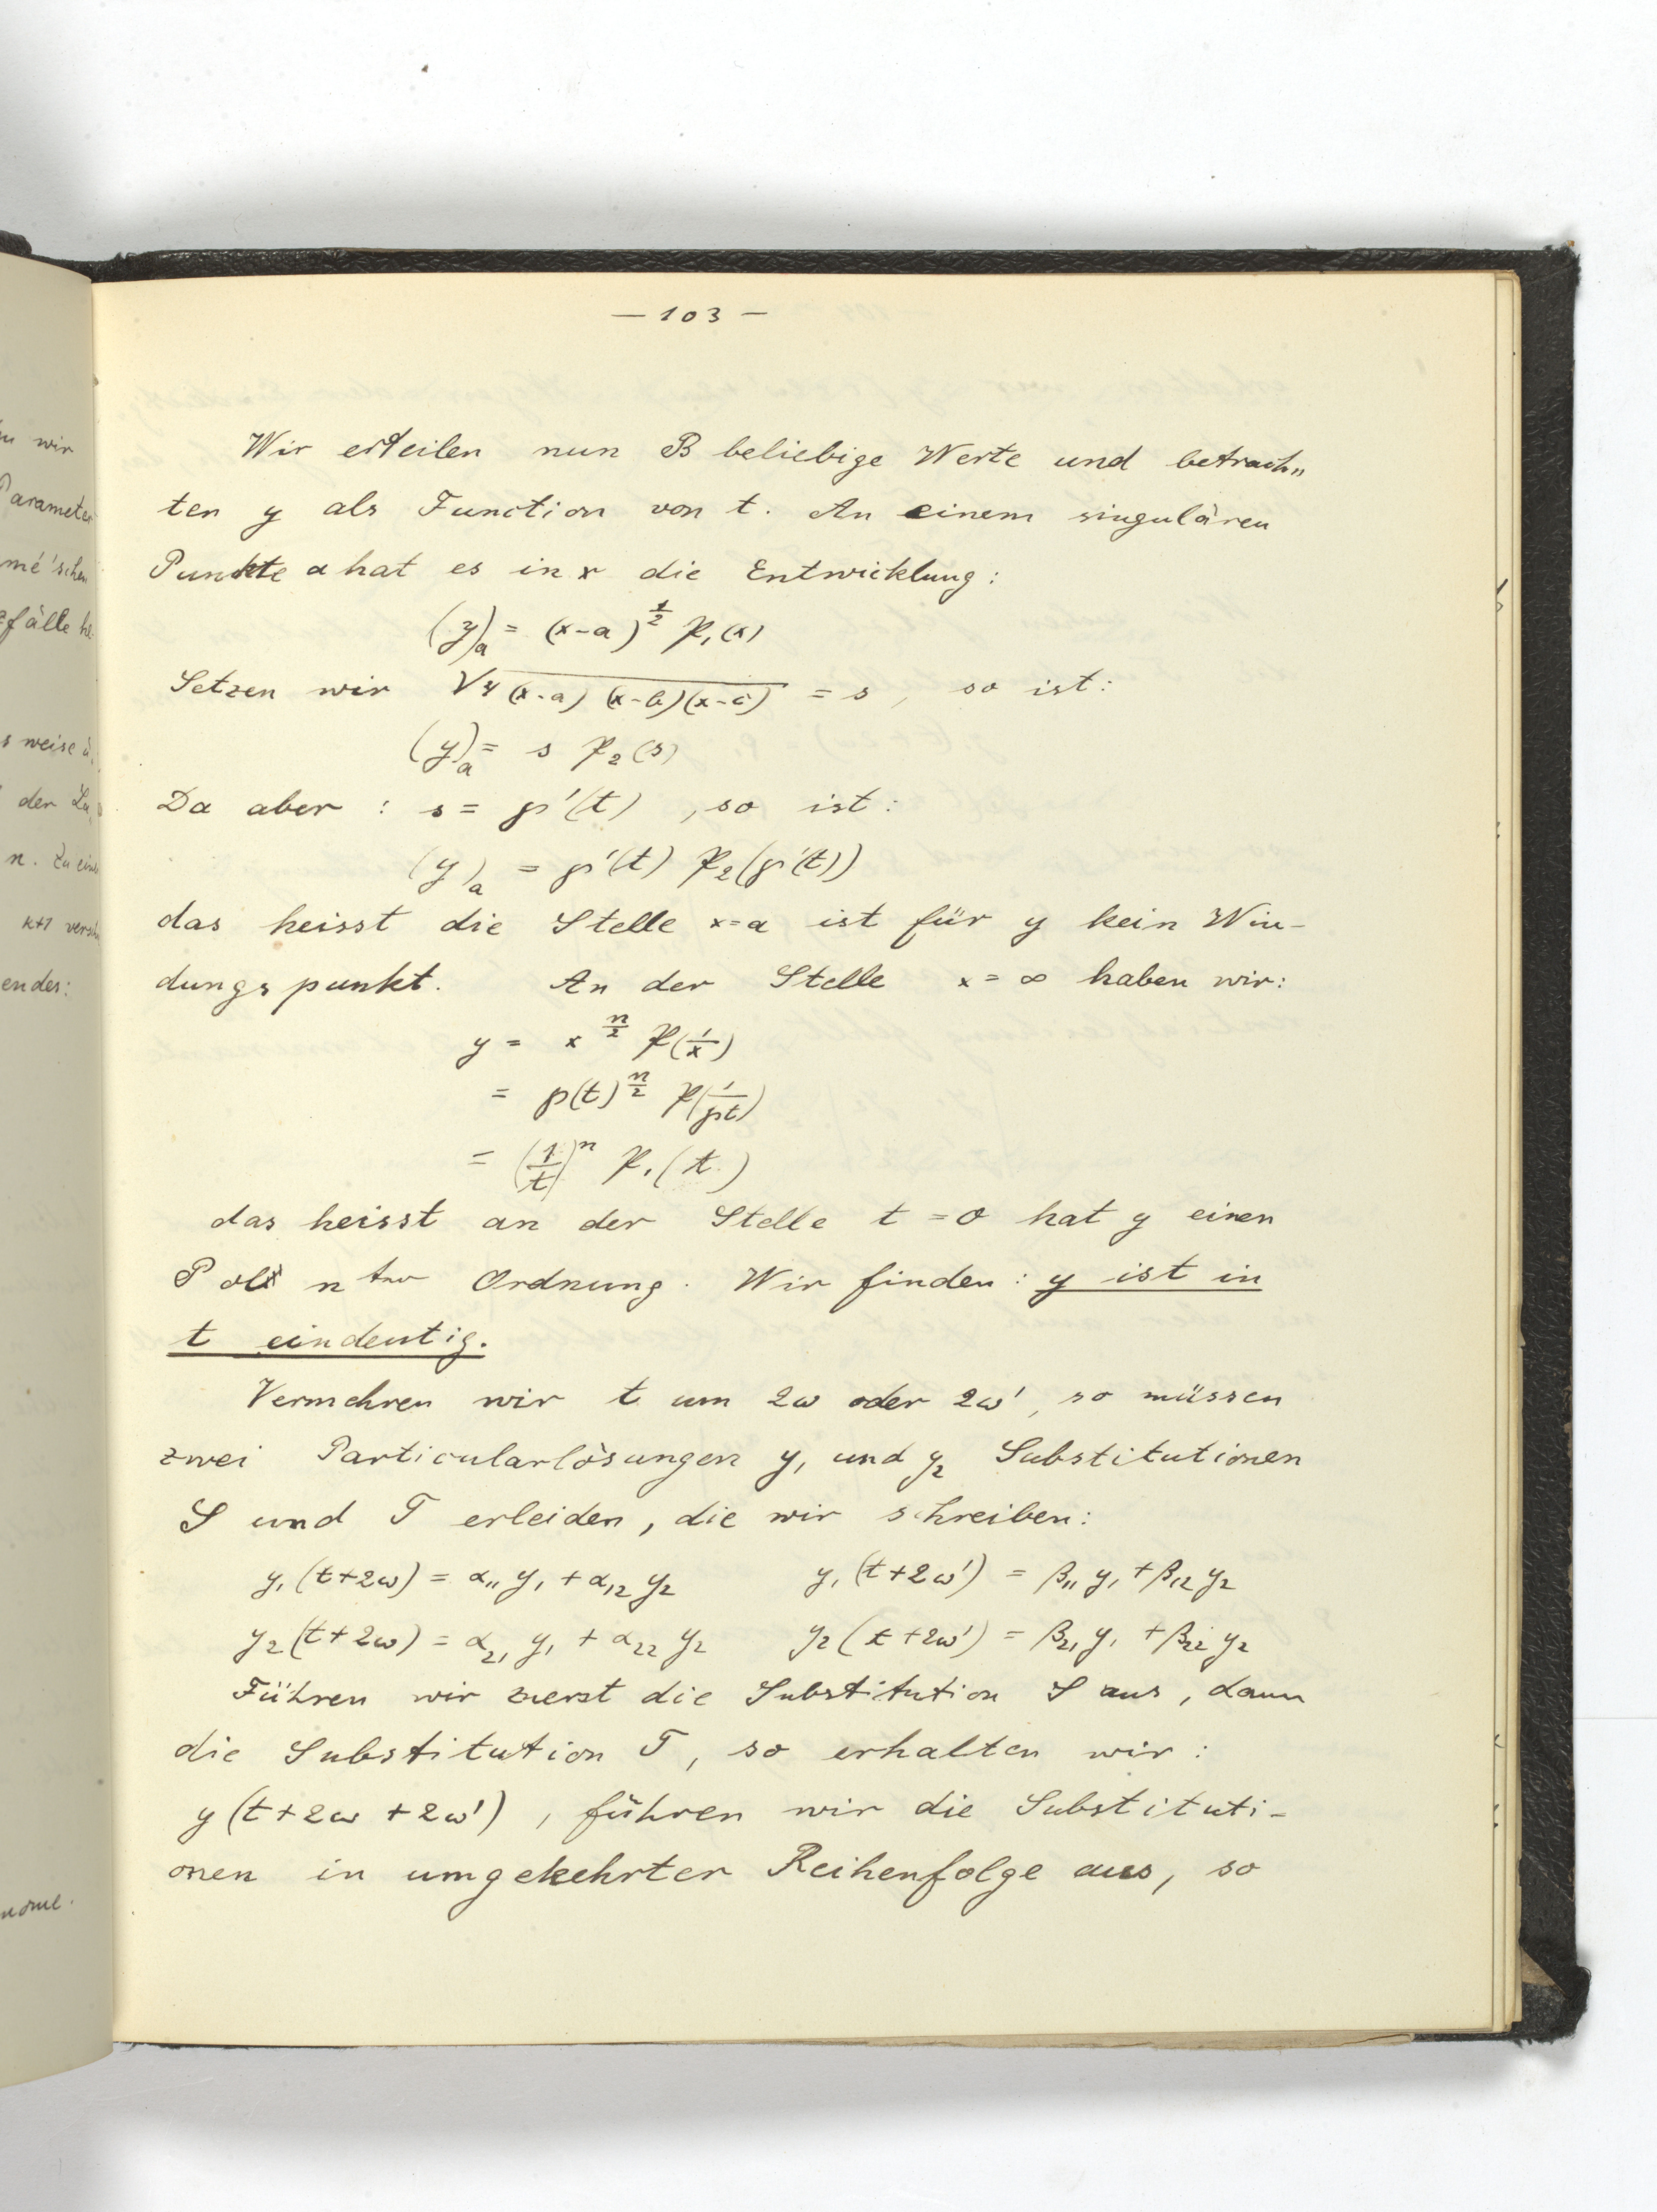 — 103 —
Wir erteilen nun B beliebige Werte und betrach„
ten y als Function von t. An einem singulären
Punkte a hat es in x die Entwicklung:
(y)ₐ = (x-a)^{1/2} 𝔓₁(x)
Setzen wir √4(x-a)(x-b)(x-c) = s, so ist:
(y)ₐ = s 𝔓₂(s)
Da aber : s = ℘'(t), so ist:
(y)ₐ = ℘'(t) 𝔓₂(℘'(t))
das heisst die Stelle x=a ist für y kein Win-
dungspunkt. An der Stelle x = ∞ haben wir:
y = x^{n/2} 𝔓(1/x)
= ℘(t)^{n/2} 𝔓(1/℘t)
= (1/t)^n 𝔓₁(t)
das heisst an der Stelle t = 0 hat y einen
Pol n ter Ordnung. Wir finden: y ist in
t eindeutig.
Vermehren wir t um 2ω oder 2ω', so müssen
zwei Particularlösungen y₁ und y₂ Substitutionen
S und T erleiden, die wir schreiben:
y₁(t+2ω) = α₁₁ y₁ + α₁₂ y₂ y₁(t+2ω') = β₁₁ y₁ + β₁₂ y₂
y₂(t+2ω) = α₂₁ y₁ + α₂₂ y₂ y₂(t+2ω') = β₂₁ y₁ + β₂₂ y₂
Führen wir zuerst die Substitution S aus, dann
die Substitution T, so erhalten wir:
y(t+2ω+2ω'), führen wir die Substituti-
onen in umgekehrter Reihenfolge aus, so
wir
Parameter
mé'schen
fälle
weise
der
n. Zu
k+1
endes: